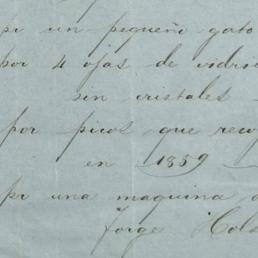 pr un pequeño gato
por 4 ojas de vidrio
sin cristales
por picos que reco
en 1859
pr una maquina d
Jorge Hols